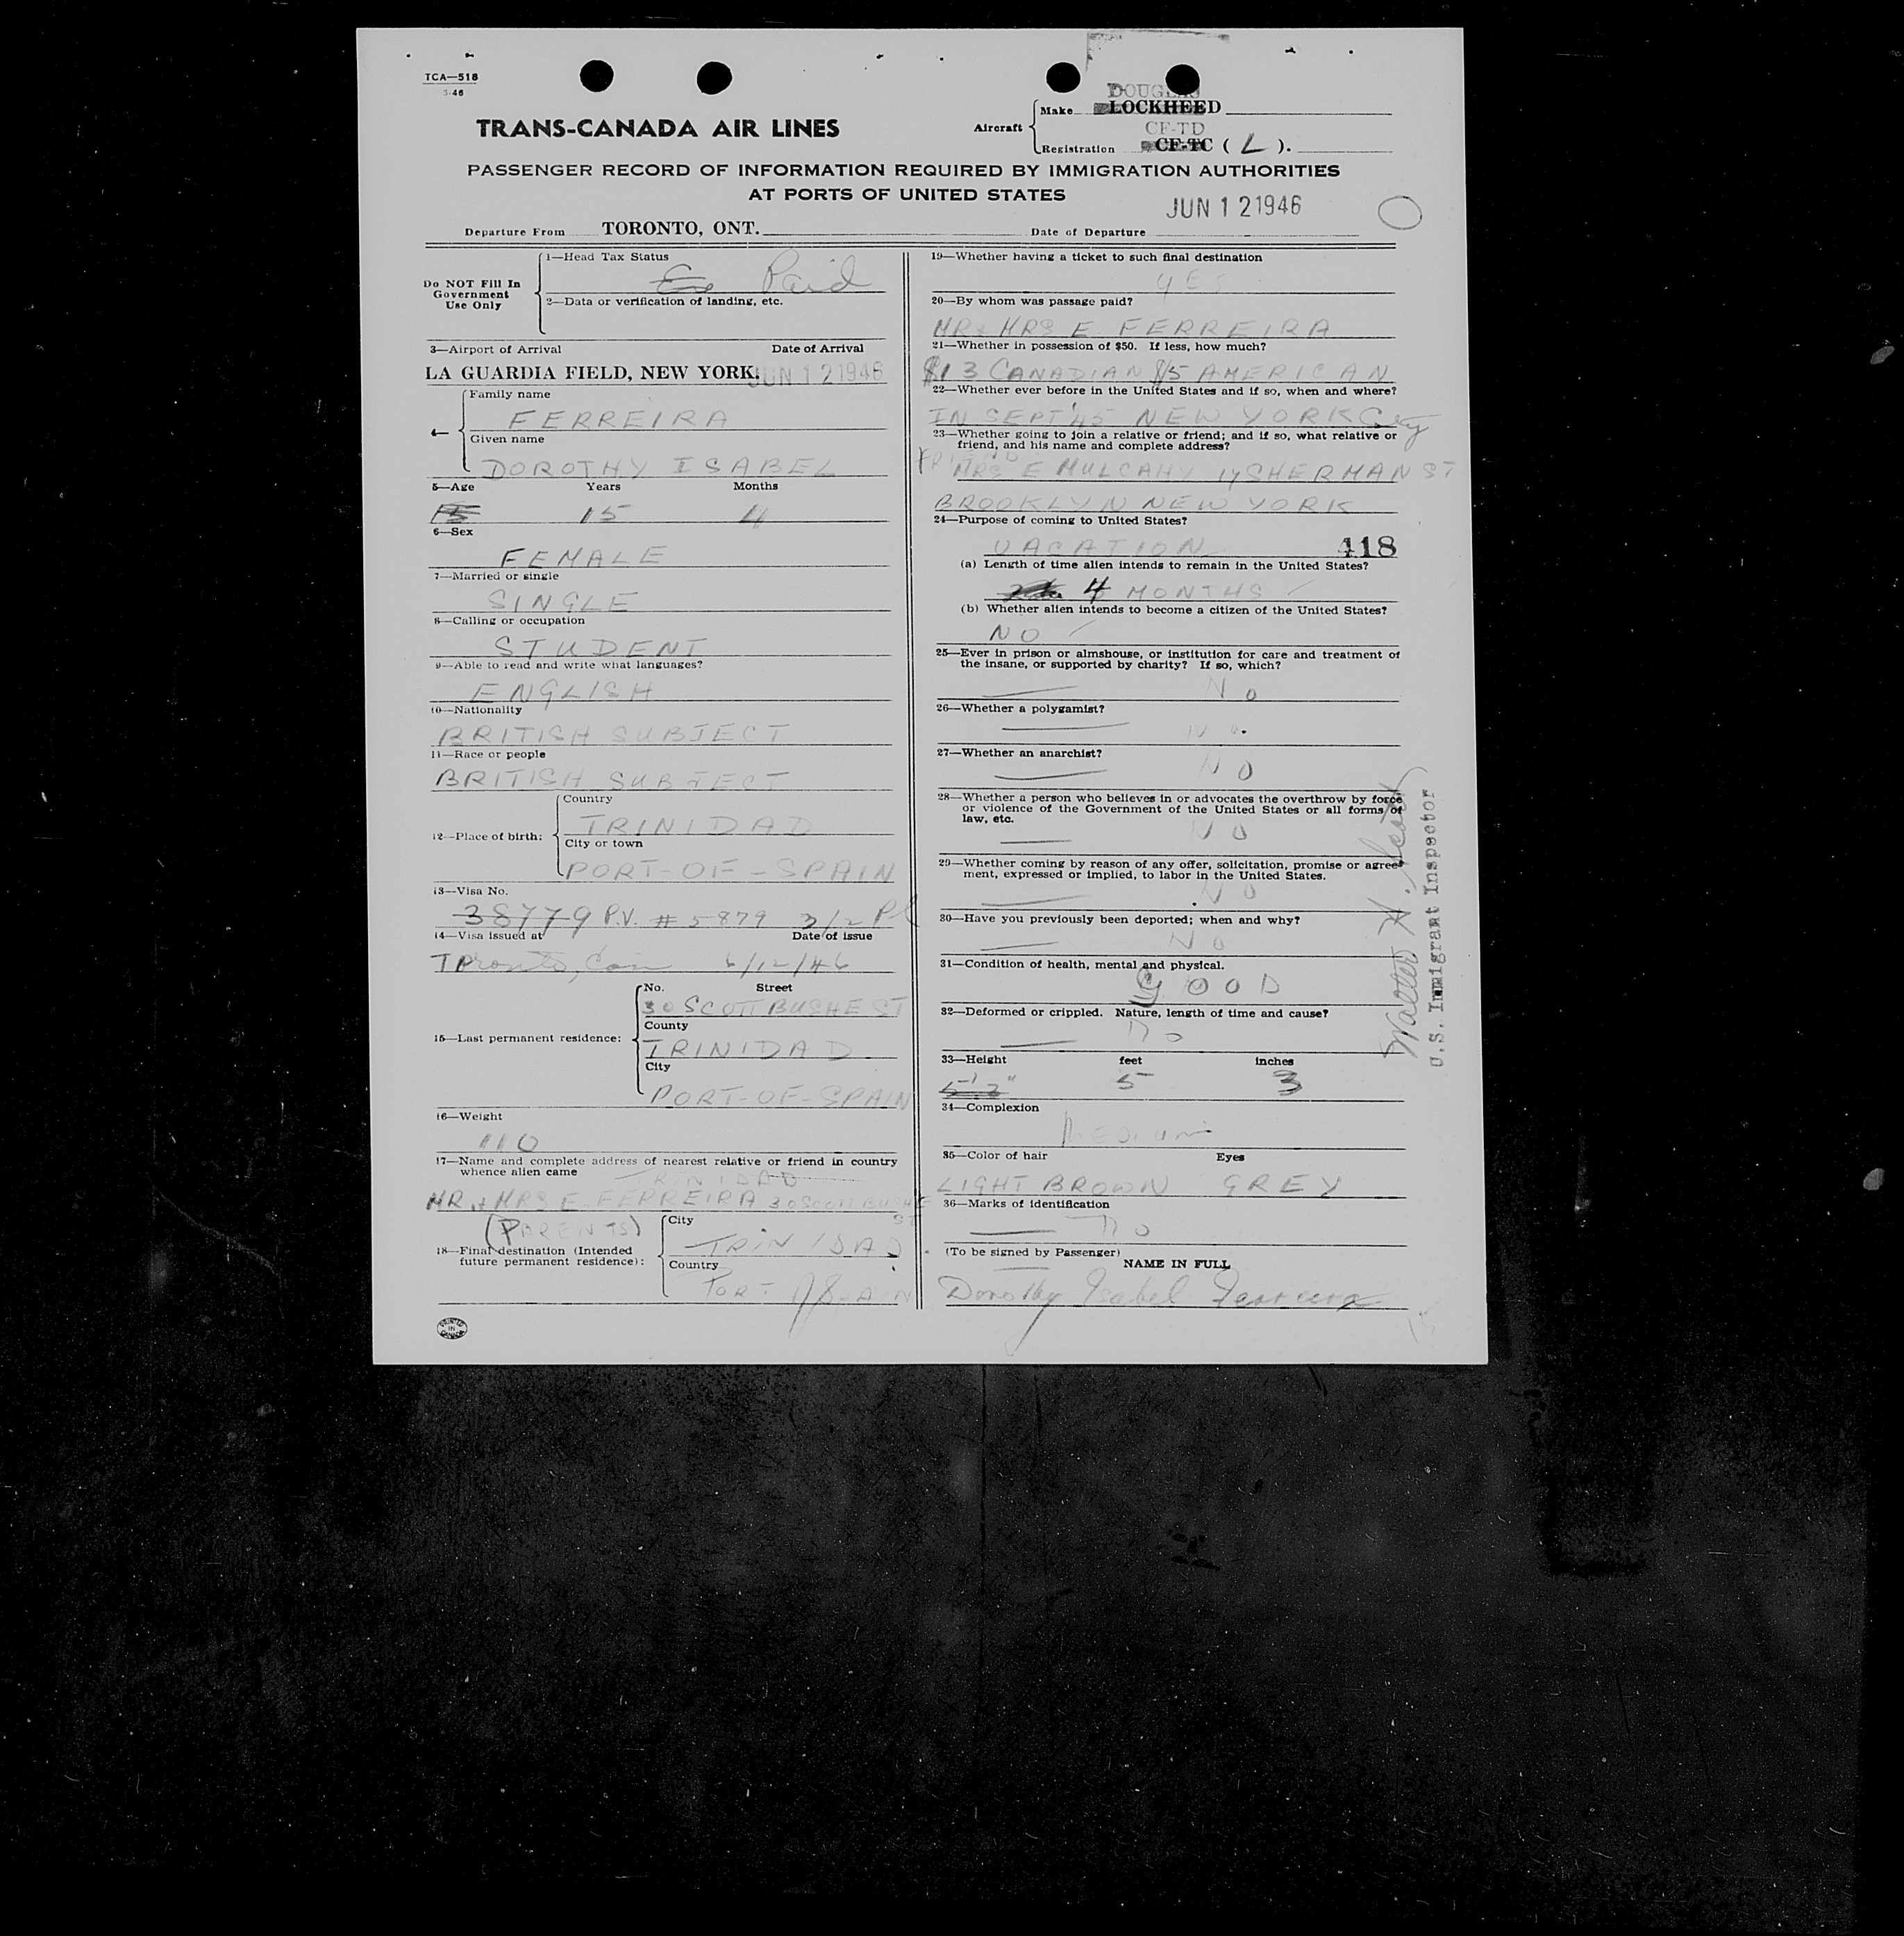 TCA—518
3-46
TRANS-CANADA AIR LINES
Aircraft
Make
DOUGLAS
LOCKHEED
CF-TD
Registration CF-TC ( L ).
PASSENGER RECORD OF INFORMATION REQUIRED BY IMMIGRATION AUTHORITIES
AT PORTS OF UNITED STATES
JUN 1 2 1946
Departure From TORONTO, ONT.
Date of Departure
Do NOT Fill In
Government
Use Only
1—Head Tax Status
Paid
2—Data or verification of landing, etc.
3—Airport of Arrival Date of Arrival
LA GUARDIA FIELD, NEW YORK. JUN 1 2 1946
4—
Family name
FERREIRA
Given name
DOROTHY ISABEL
5—Age Years Months
15 15 4
6—Sex
FEMALE
7—Married or single
SINGLE
8—Calling or occupation
STUDENT
9—Able to read and write what languages?
ENGLISH
10—Nationality
BRITISH SUBJECT
11—Race or people
BRITISH SUBJECT
12—Place of birth:
Country
TRINIDAD
City or town
PORT-OF-SPAIN
13—Visa No.
38779 P.V. # 5879 3/2
14—Visa issued at Date of issue
Toronto, Can 6/12/46
15—Last permanent residence:
No. Street
30 SCOTT BUSHE ST
County
TRINIDAD
City
PORT-OF-SPAIN
16—Weight
110
17—Name and complete address of nearest relative or friend in country
whence alien came
TRINIDAD
MR & MRS E FERREIRA 30 SCOTT BUSHE
ST
(PARENTS)
18—Final destination (Intended
future permanent residence):
City
TRINIDAD
Country
PORT OF SPAIN
PRINTED IN CANADA
19—Whether having a ticket to such final destination
YES
20—By whom was passage paid?
MR & MRS E FERREIRA
21—Whether in possession of $50. If less, how much?
$13 CANADIAN $15 AMERICAN
22—Whether ever before in the United States and if so, when and where?
IN SEPT '45 NEW YORK City
23—Whether going to join a relative or friend; and if so, what relative or
friend, and his name and complete address?
FRIEND
MRS E MULCAHY 14 SHERMAN ST
BROOKLYN NEW YORK
24—Purpose of coming to United States?
VACATION 418
(a) Length of time alien intends to remain in the United States?
4 MONTHS
(b) Whether alien intends to become a citizen of the United States?
NO
25—Ever in prison or almshouse, or institution for care and treatment of
the insane, or supported by charity? If so, which?
No
26—Whether a polygamist?
No.
27—Whether an anarchist?
NO
28—Whether a person who believes in or advocates the overthrow by force
or violence of the Government of the United States or all forms of
law, etc.
NO
29—Whether coming by reason of any offer, solicitation, promise or agree-
ment, expressed or implied, to labor in the United States.
NO
30—Have you previously been deported; when and why?
No
31—Condition of health, mental and physical.
GOOD
32—Deformed or crippled. Nature, length of time and cause?
no
33—Height feet inches
5' 3" 5 3
34—Complexion
MEDIUM
35—Color of hair Eyes
LIGHT BROWN GREY
36—Marks of identification
no
(To be signed by Passenger)
NAME IN FULL
Dorothy Isabel Ferreira
Walter H.
U.S. Immigrant Inspector